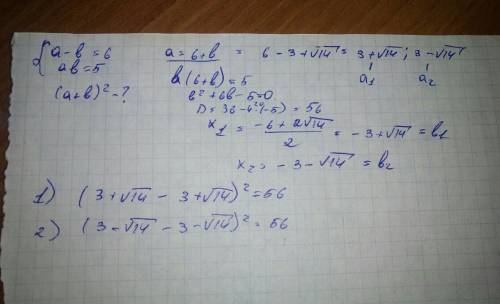 {a-b=6
ab=5
(a+b)² - ?
a = 6+b = 6-3+√14 = 3+√14 ; 3-√14
a₁ a₂
b(6+b)=5
b²+6b-5=0
D = 36-4·(-5) = 56
x₁ = (-6+2√14)/2 = -3+√14 = b₁
x₂ = -3-√14 = b₂
1) (3+√14 - 3+√14)² = 56
2) (3-√14 - 3-√14)² = 56